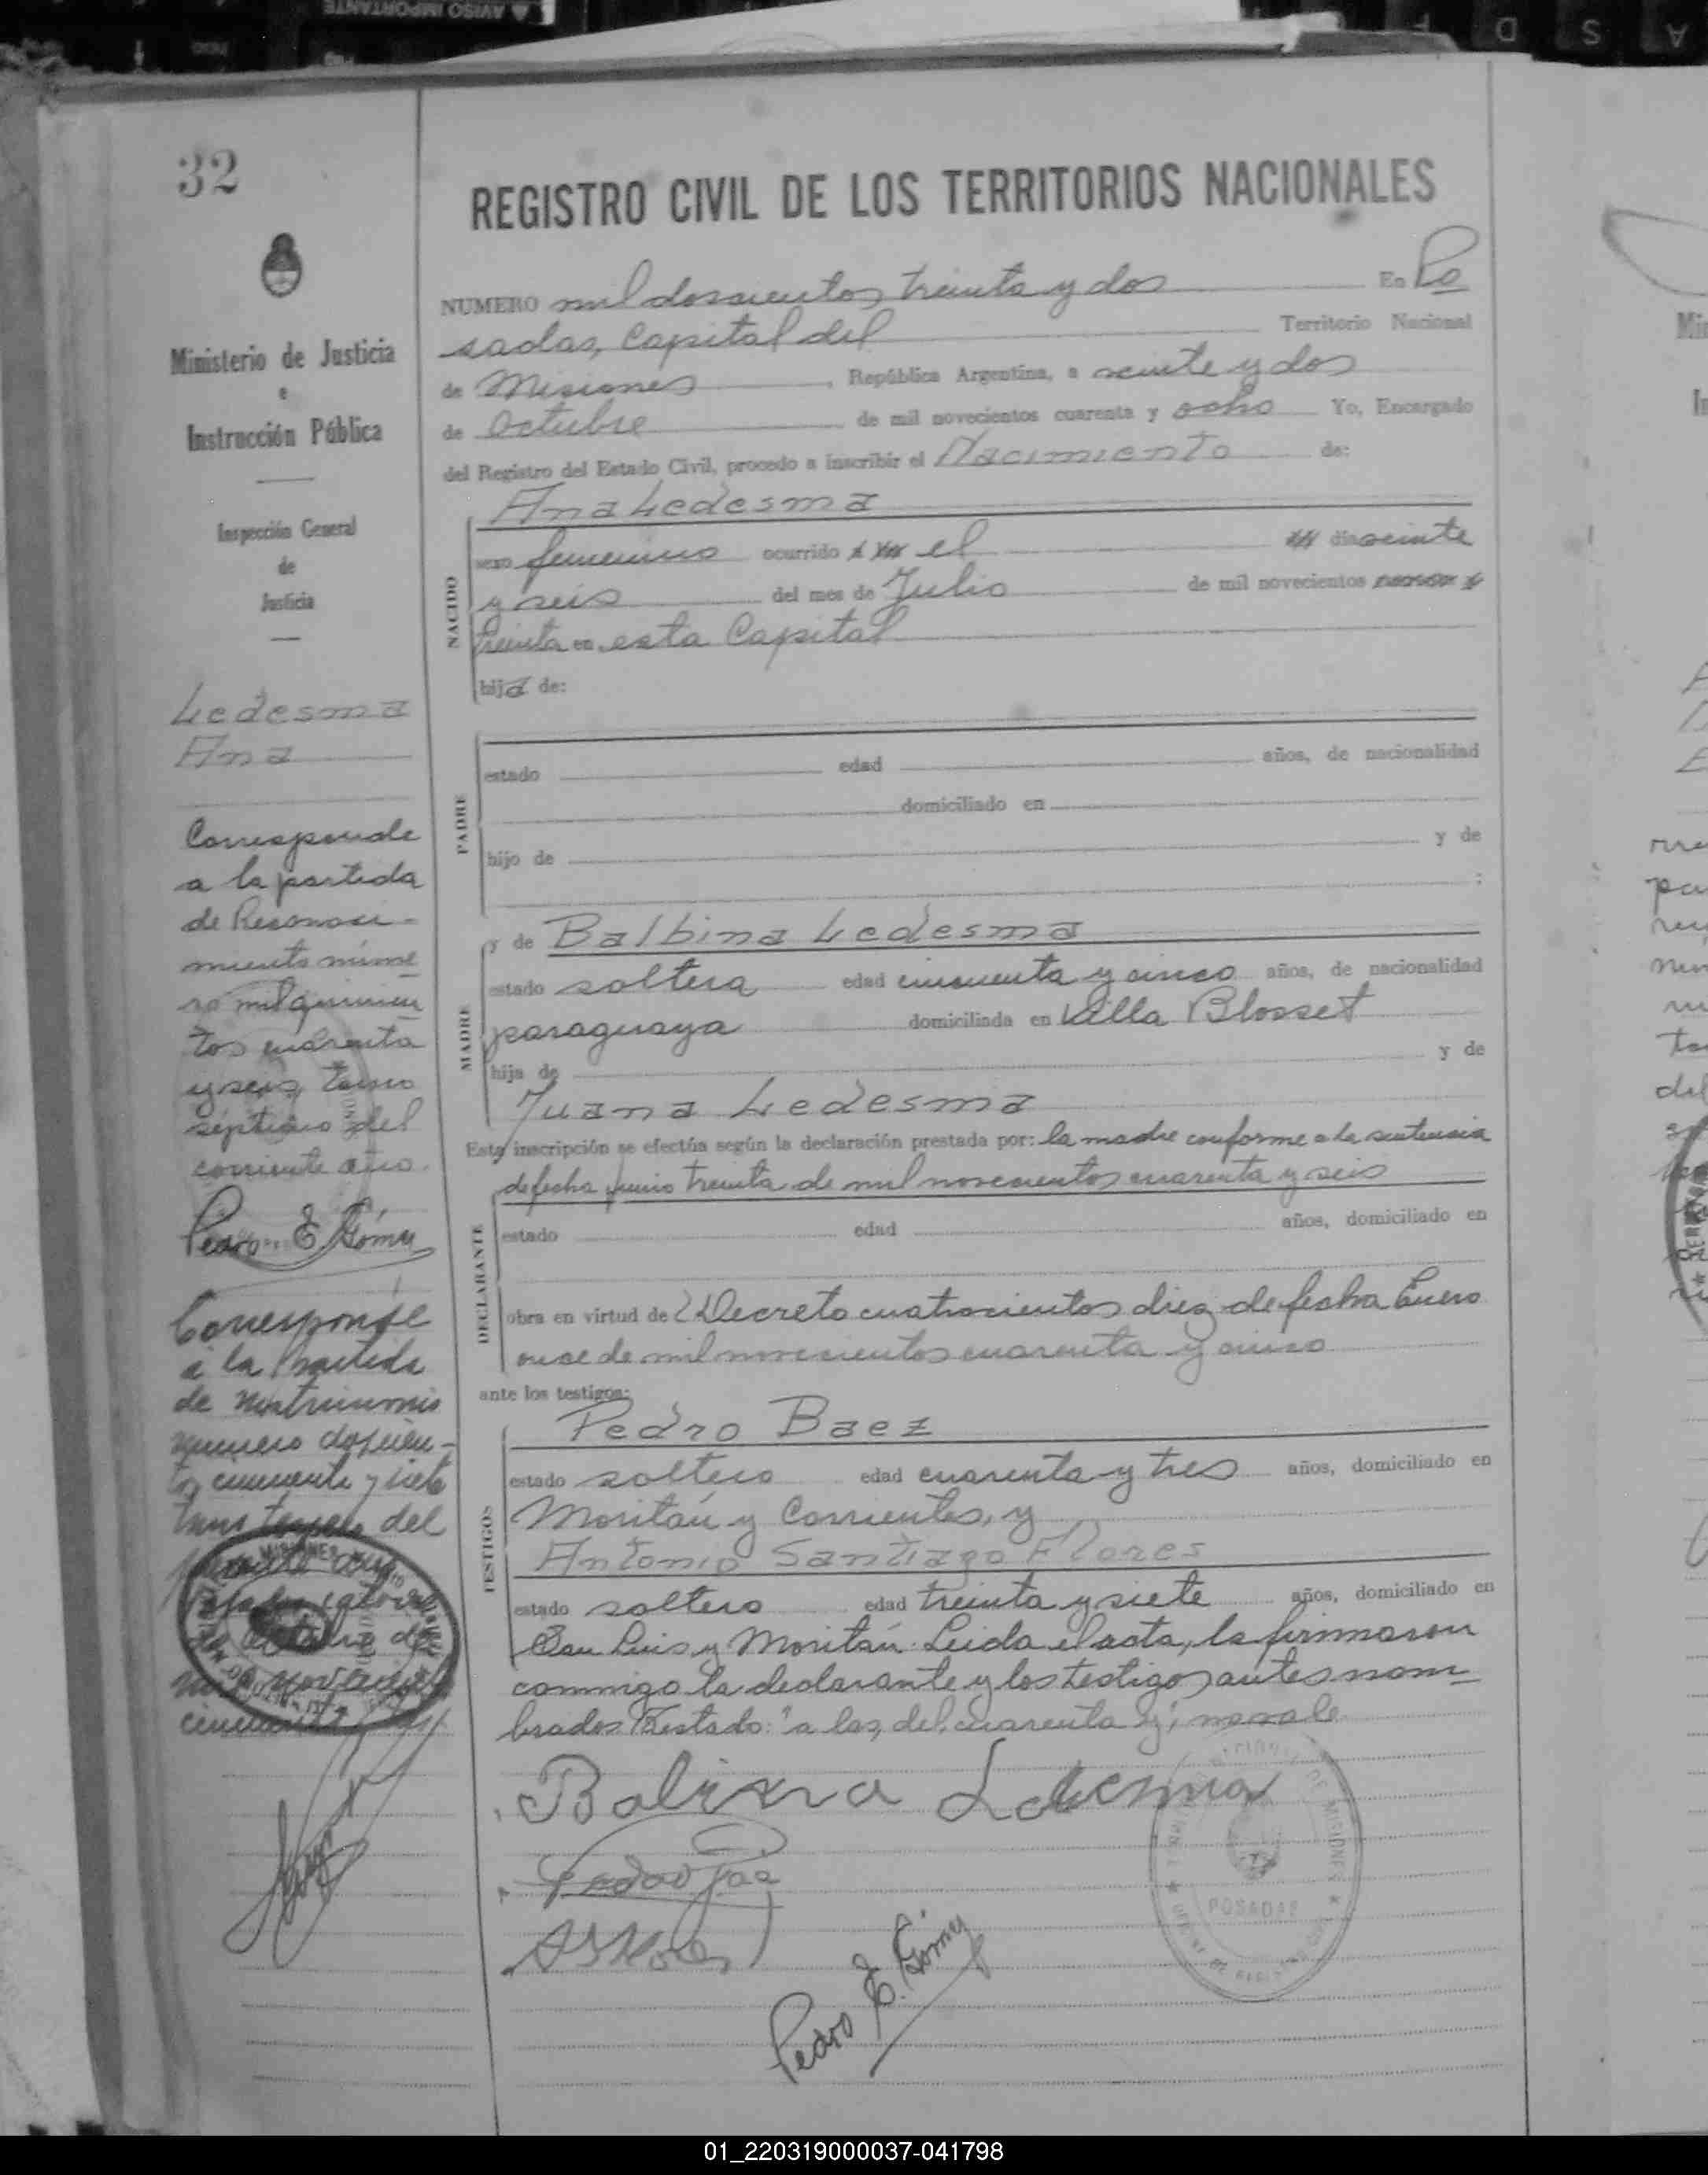 AVISO IMPORTANTE
A S D F
32
REGISTRO CIVIL DE LOS TERRITORIOS NACIONALES
NUMERO mil doscientos treinta y dos En Po
sadas, Capital del Territorio Nacional
de Misiones, República Argentina, a veinte y dos
de Octubre de mil novecientos cuarenta y ocho Yo, Encargado
del Registro del Estado Civil, procedo a inscribir el Nacimiento de:
Ana Ledesma
NACIDO
sexo femenino ocurrido el dia veinte
y seis del mes de Julio de mil novecientos
treinta en esta Capital
hija de:
PADRE
estado edad años, de nacionalidad
domiciliado en
hijo de y de
:
MADRE
y de Balbina Ledesma
estado soltera edad cincuenta y cinco años, de nacionalidad
paraguaya domiciliada en Villa Blosset
hija de y de
Juana Ledesma
Esta inscripción se efectúa según la declaración prestada por: la madre conforme a la sentencia
de fecha junio treinta de mil novecientos cuarenta y seis
DECLARANTE
estado edad años, domiciliado en
obra en virtud de Decreto cuatrocientos diez de fecha Enero
once de mil novecientos cuarenta y cinco
ante los testigos:
TESTIGOS
Pedro Baez
estado soltero edad cuarenta y tres años, domiciliado en
Moritán y Corrientes, y
Antonio Santiago Flores
estado soltero edad treinta y siete años, domiciliado en
San Luis y Moritán. Leida el acta, la firmaron
conmigo la declarante y los testigos antes nom
brados. Testado: "a las, del, cuarenta y", no vale.
Balbina Ledesma
Pedro E. Gómez
POSADAS
Ministerio de Justicia
e
Instrucción Pública
Inspección General
de
Justicia
Ledesma
Ana
Corresponde
a la partida
de Reconoci-
miento núme
ro mil quinien
tos cuarenta
y seis, tomo
séptimo del
corriente año.
Pedro E. Gómez
Corresponde
a la partida
de matrimonio
numero doscien-
tos cincuenta y siete
tomo tercero del
presente año
cincuenta
01_220319000037-041798